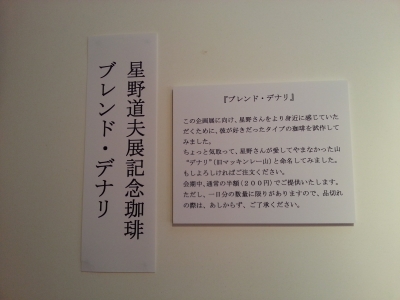 星野道夫展記念珈琲
ブレンド・デナリ
『ブレンド・デナリ』
この企画展に向け、星野さんをより身近に感じていた
だくために、彼が好きだったタイプの珈琲を試作して
みました。
ちょっと気取って、星野さんが愛してやまなかった山
“デナリ”(旧マッキンレー山)と命名してみました。
もしよろしければご注文ください。
会期中、通常の半額(200円)でご提供いたします。
ただし、一日分の数量に限りがありますので、品切れ
の際は、あしからず、ご了承ください。